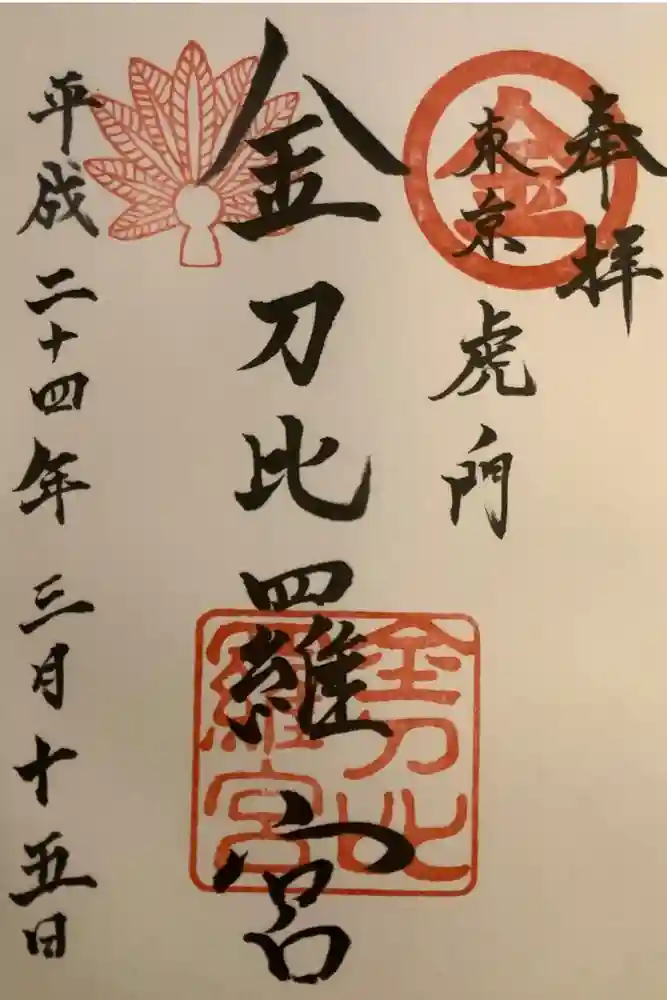 奉拝
東京虎門
金
金刀比羅宮
金刀比羅宮
平成二十四年三月十五日